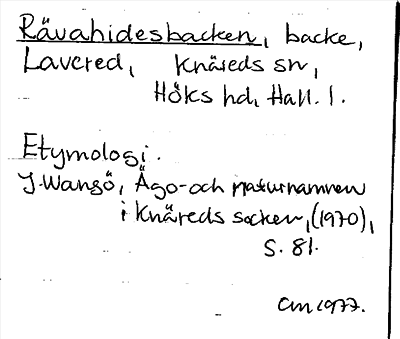 Rävahidesbacken, backe,
Lavered, Knäreds sn,
Höks hd, Hall. l.
Etymologi.
J. Wangö, Ägo- och naturnamnen
i Knäreds socken, (1970),
S. 81.
CM 1977.